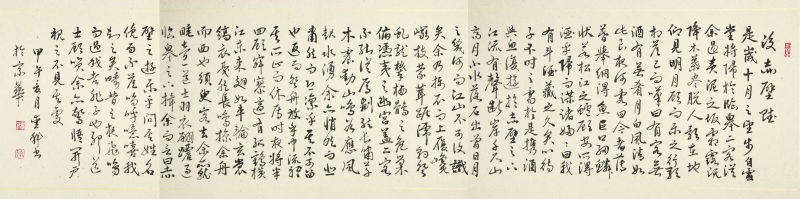 後赤壁賦
是歲十月之望步自雪
堂將歸於臨皋二客從
余過黃泥之坂霜露既
降木葉盡脫人影在地
仰見明月顧而樂之行歌
相答已而歎曰有客無
酒有酒無肴月白風清如
此良夜何客曰今者薄
暮舉網得魚巨口細鱗
狀若松江之鱸顧安所得
酒乎歸而謀諸婦婦曰我
有斗酒藏之久矣以待
子不時之需於是攜酒
與魚復遊於赤壁之下
江流有聲斷岸千尺山
高月小水落石出曾日月
之幾何而江山不可復識
矣余乃攝衣而上履巉
巖披蒙茸踞虎豹登
虬龍攀栖鶻之危巢
俯馮夷之幽宮蓋二客
不能從焉劃然長嘯草
木震動山鳴谷應風
起水湧余亦悄然而悲
肅然而恐凜乎其不可留
也返而登舟放乎中流聽
其所止而休焉時夜將半
四顧寂寥適有孤鶴橫
江東來翅如車輪玄裳
縞衣戛然長鳴掠余舟
而西也須臾客去余亦就
睡夢一道士羽衣翩躚過
臨皋之下揖余而言曰赤
壁之遊樂乎問其姓名
俛而不答嗚呼噫嘻我
知之矣疇昔之夜飛鳴
而過我者非子也耶道
士顧笑余亦驚悟開戶
視之不見其處
甲午月書
於京華